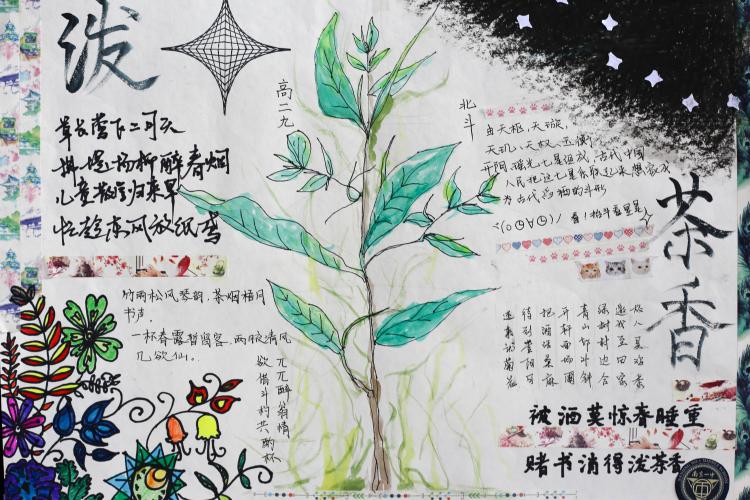 泼
草长莺飞二月天
拂堤杨柳醉春烟
儿童散学归来早
忙趁东风放纸鸢
高二九
竹雨松风琴韵，茶烟梧月
书声。
一杯春露暂留客，两腋清风
几欲仙。
兀兀醉翁情
欲借斗杓共酌杯
北斗
由天枢，天璇，
天玑，天权，玉衡
开阳，瑶光七星组成，古代中国
人民把这七星联系起来想象成
为古代舀酒的斗形
茶香
故人具鸡黍
邀我至田家
绿树村边合
青山郭外斜
开轩面场圃
把酒话桑麻
待到重阳日
还来就菊花
被酒莫惊春睡重
赌书消得泼茶香
南京一中